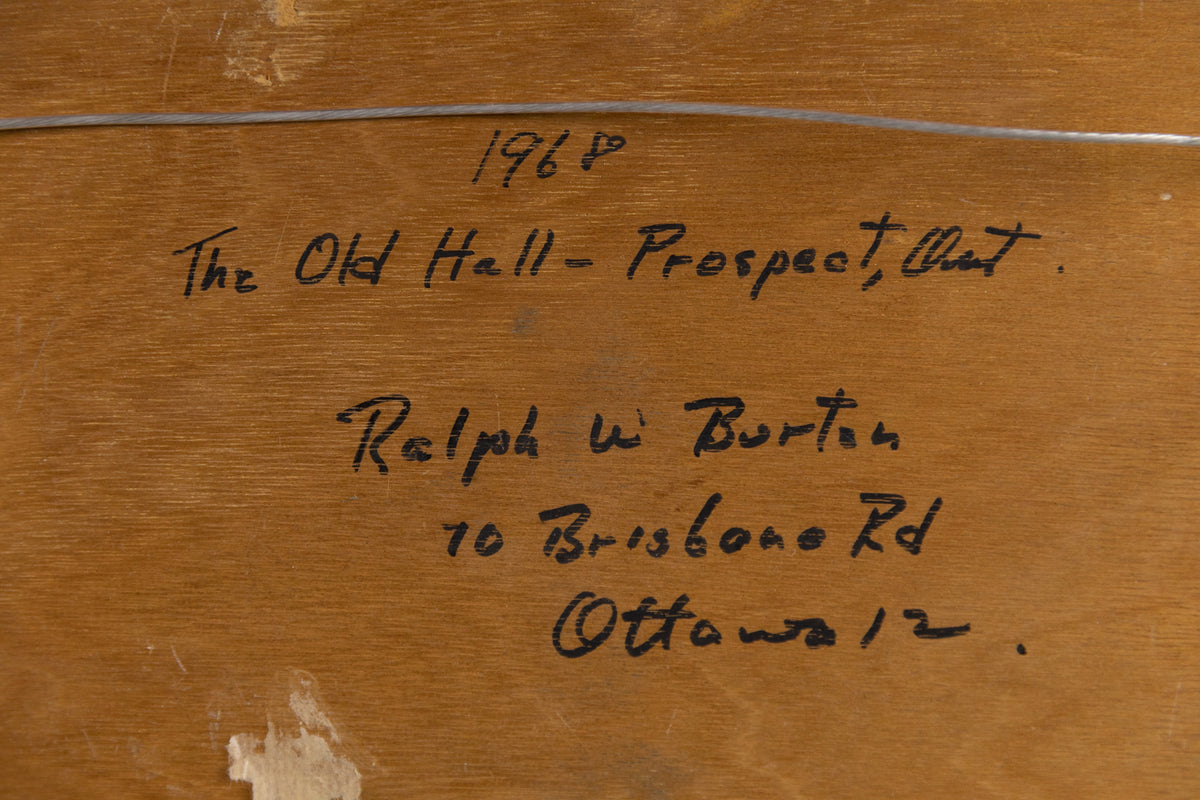 1968
The Old Hall - Prospect, Ont.
Ralph W Burton
70 Brisbane Rd
Ottawa 12.